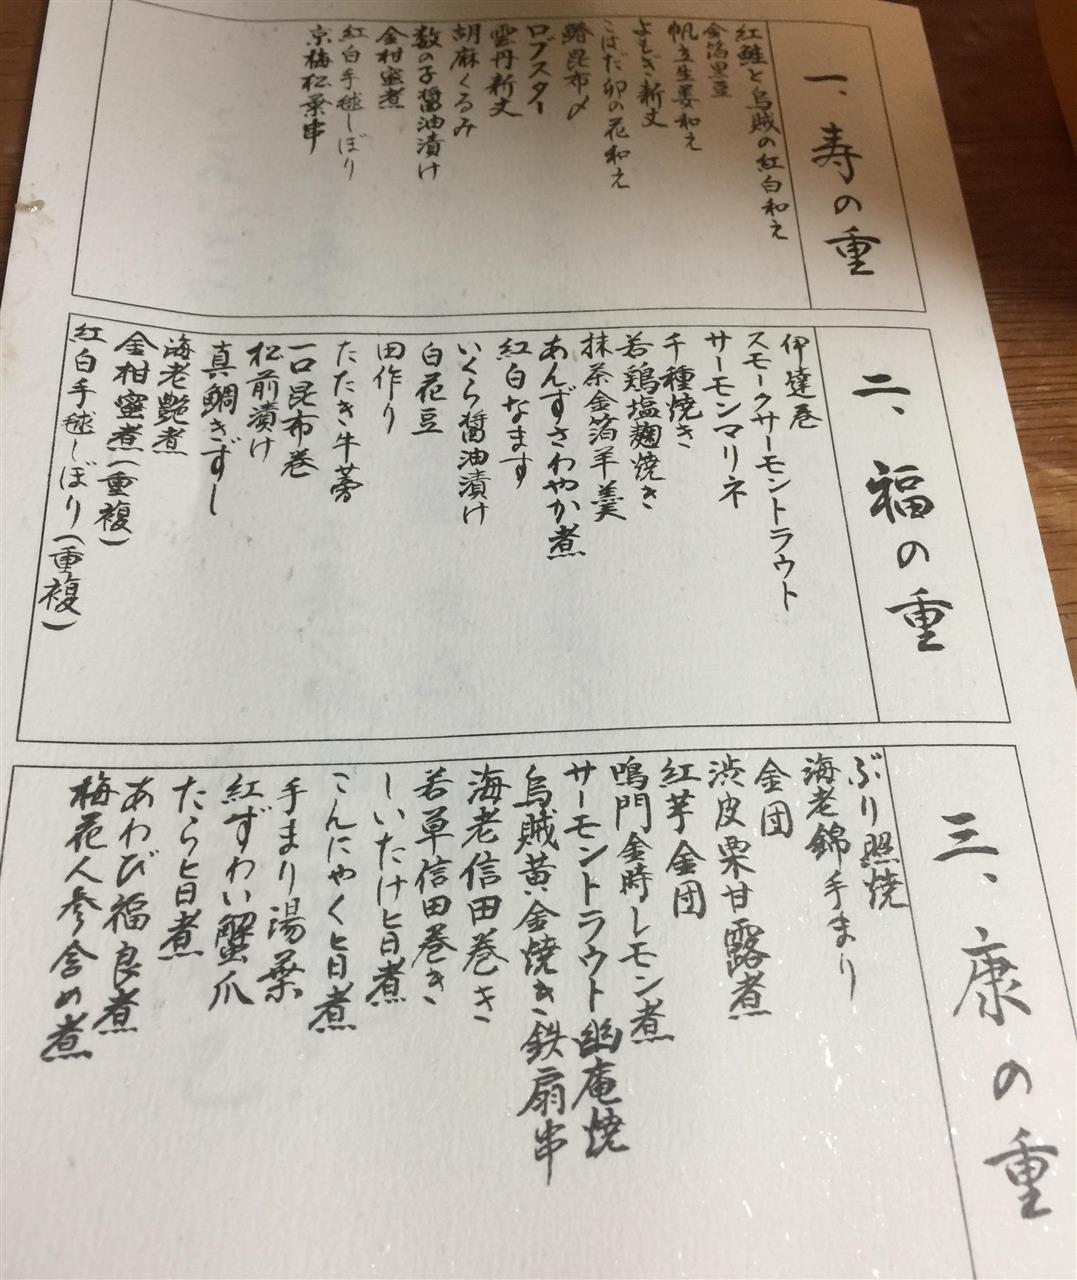 一、寿の重
紅鮭と烏賊の紅白和え
金箔黒豆
帆立生姜和え
よもぎ新丈
こはだ卯の花和え
鰆昆布〆
ロブスター
雲丹新丈
胡麻くるみ
数の子醤油漬け
金柑蜜煮
紅白手毬しぼり
京梅松葉串
二、福の重
伊達巻
スモークサーモントラウト
サーモンマリネ
千種焼き
若鶏塩麹焼き
抹茶金箔羊羹
あんずさわやか煮
紅白なます
いくら醤油漬け
白花豆
田作り
たたき牛蒡
一口昆布巻
松前漬け
真鯛きずし
海老艶煮
金柑蜜煮(重複)
紅白手毬しぼり(重複)
三、康の重
ぶり照焼
海老錦手まり
金団
渋皮栗甘露煮
紅芋金団
鳴門金時レモン煮
サーモントラウト幽庵焼
烏賊黄金焼き鉄扇串
海老信田巻き
若草信田巻き
しいたけ旨煮
こんにゃく旨煮
手まり湯葉
紅ずわい蟹爪
たら旨煮
あわび福良煮
梅花人参含め煮